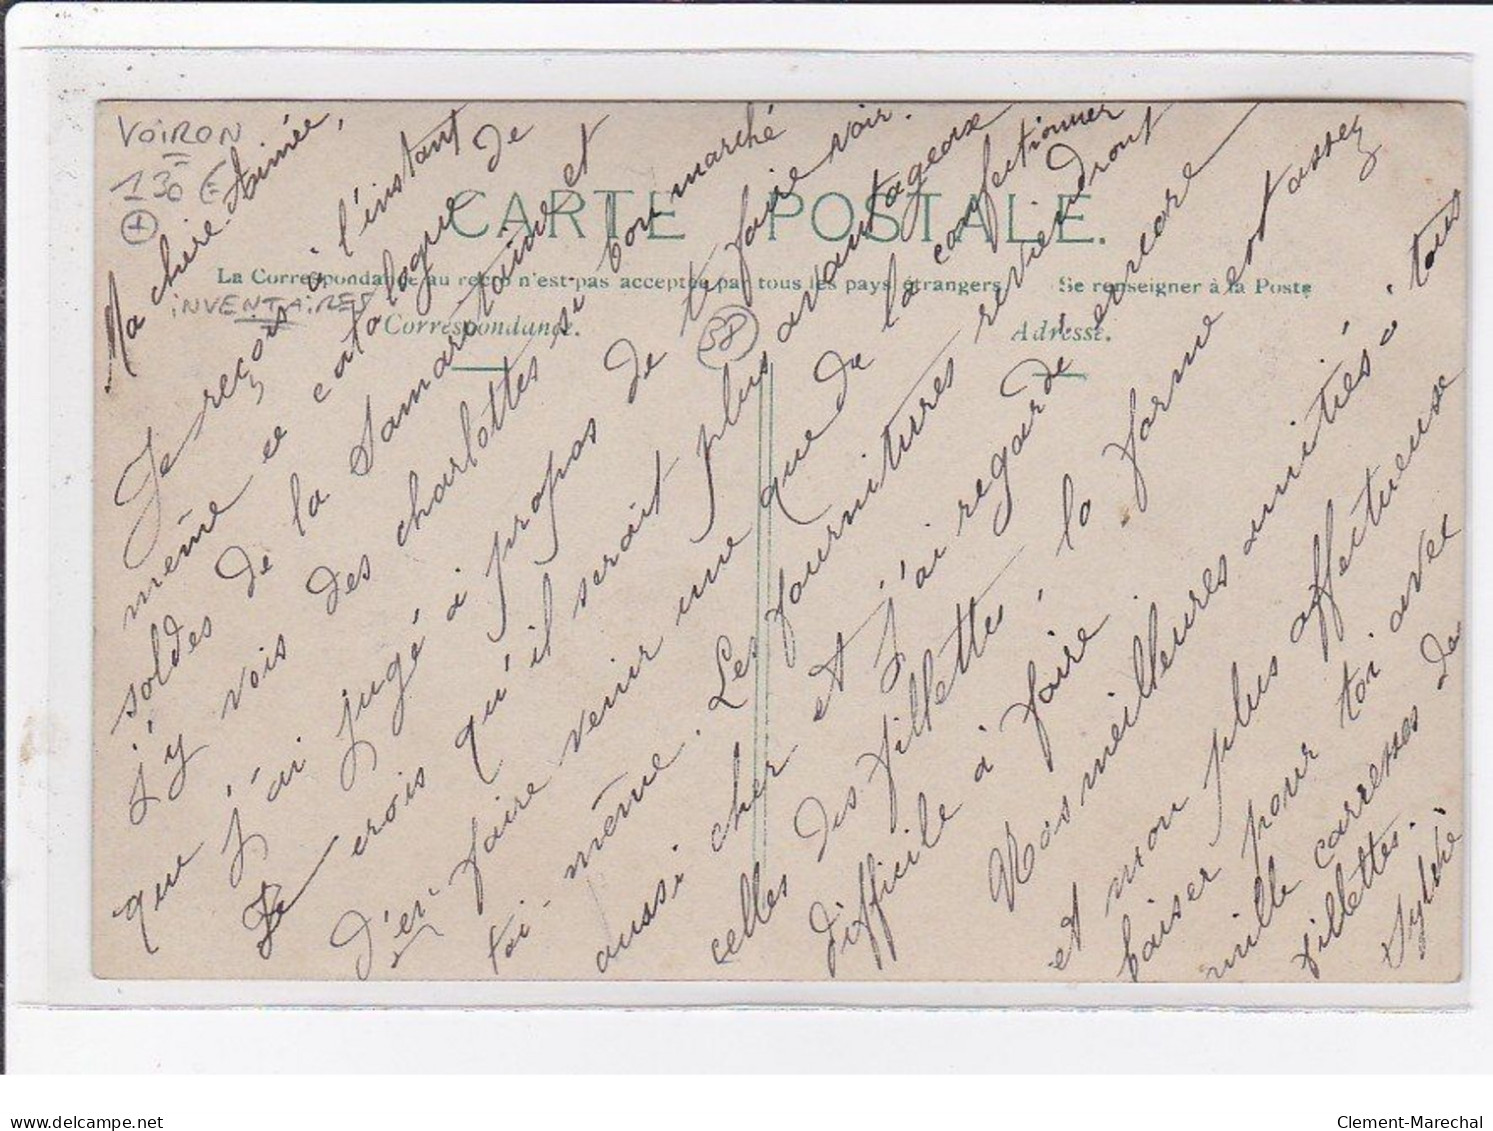 VOIRON
130 €
INVENTAIRES
38
CARTE POSTALE.
La Correspondance au recto n'est pas acceptée par tous les pays étrangers. Se renseigner à la Poste
Correspondance.
Adresse.
Ma chère Aimée,
Je reçois à l'instant
même ce catalogue de
soldes de la Samaritaine et
j'y vois des charlottes si bon marché
que j'ai jugé à propos de te faire voir.
Je crois qu'il serait plus avantageux
d'en faire venir une que de la confectionner
toi-même. Les fournitures reviendront
aussi cher et j'ai regardé encore
celles des fillettes, la forme est assez
difficile à faire.
Nos meilleures amitiés à tous
et mon plus affectueux
baiser pour toi avec
mille caresses de
fillettes.
Sylvie
Clement-Marechal